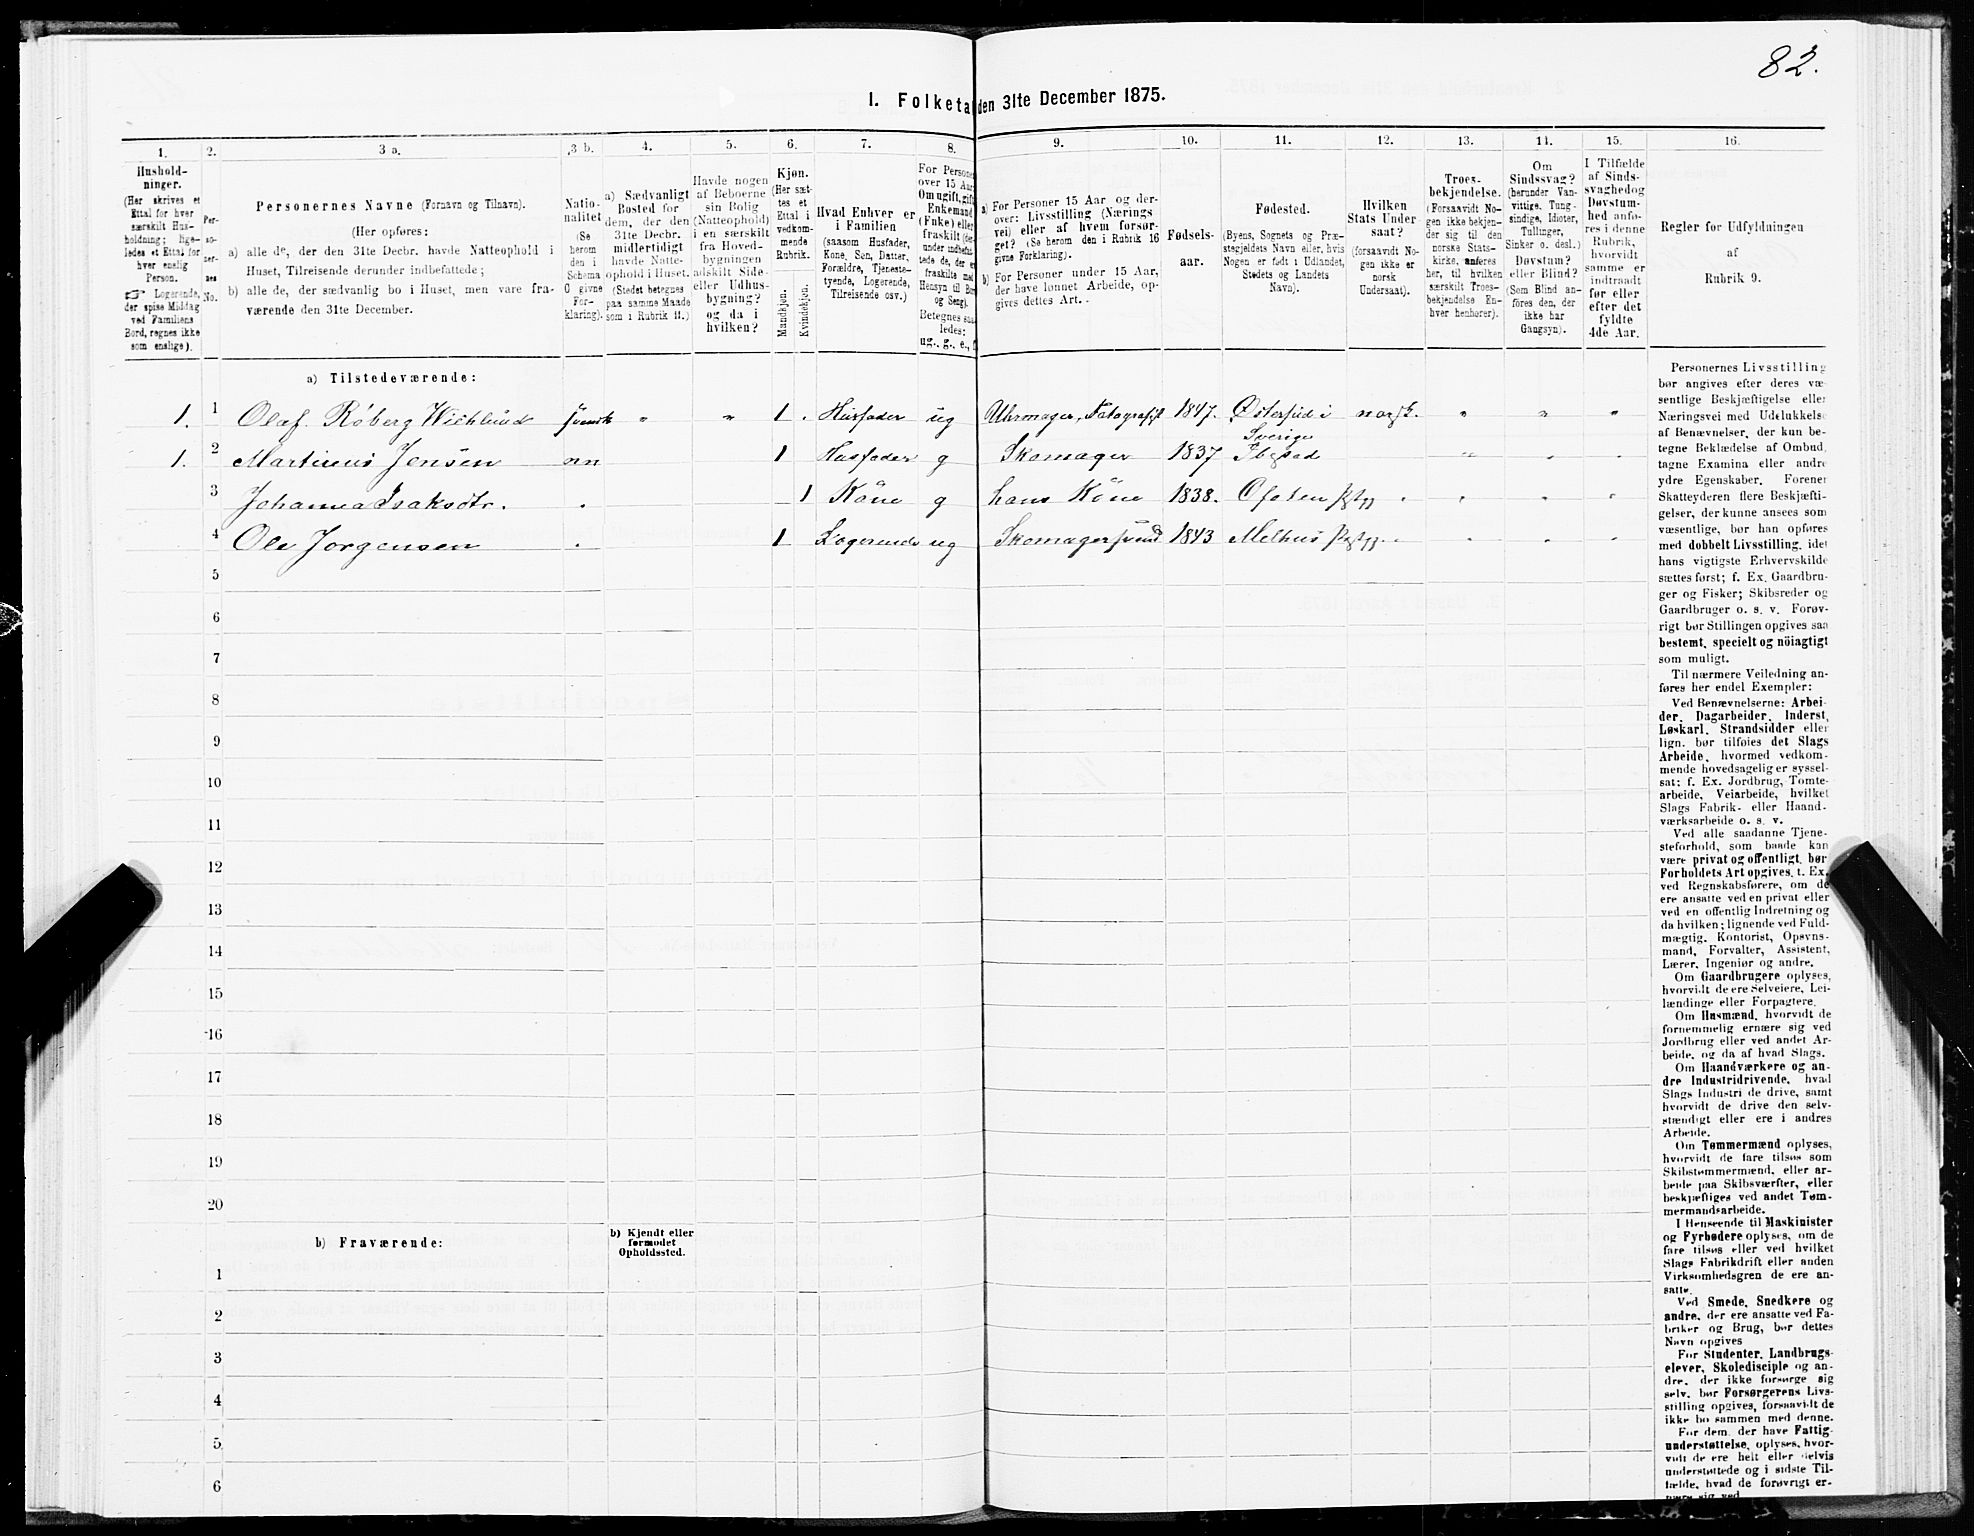 82.
1. Folketal den 31te December 1875.
1. 2. 3 a. 3 b. 4. 5. 6. 7. 8. 9. 10. 11. 12. 13. 14. 15. 16.
Hushold-
ninger.
(Her skrives et
Ettal for hver
særskilt Hus-
holdning; lige-
ledes et Ettal for
hver enslig
Person.
☞ Logerende,
der spise Middag
ved Familiens
Bord, regnes ikke
som enslige).
Per-
so-
ner-
nes
No.
Personernes Navne (Fornavn og Tilnavn).
(Her opføres:
a) alle de, der den 31te Decbr. havde Natteophold i
Huset, Tilreisende derunder indbefattede;
b) alle de, der sædvanlig bo i Huset, men vare fra-
værende den 31te December.
Natio-
nalitet
(Se
herom
den i
Schema
O givne
For-
klaring).
a) Sædvanligt
Bosted for
dem, der den
31te Decbr.
midlertidigt
havde Natte-
ophold i Huset.
(Stedet betegnes
paa samme Maade
som i Rubrik 11.)
Havde nogen
af Beboerne
sin Bolig
(Natteophold)
i en særskilt
fra Hoved-
bygningen
adskilt Side-
eller Udhus-
bygning?
og da i
hvilken?
Kjøn.
(Her sæt-
tes et
Ettal i
vedkom-
mende
Rubrik.
Mandkjøn.
Kvindekjøn.
Hvad Enhver er
i Familien
(saasom Husfader,
Kone, Søn, Datter,
Forældre, Tjeneste-
tyende, Logerende,
Tilreisende osv.)
For Persone
over 15 Aar
Om ugift, gift
Enkemand
(Enke) eller
fraskilt (der-
under indbefat-
tede de, der ere
fraskilte med
Hensyn til Bord
og Seng).
Betegnes saa-
ledes:
ug., g., e., f.
a) For Personer 15 Aar og der-
over: Livsstilling (Nærings
vei) eller af hvem forsør-
get? (Se herom den i Rubrik 16
givne Forklaring).
b) For Personer under 15 Aar,
der have lønnet Arbeide, op-
gives dettes Art.
Fødsels-
aar.
Fødested.
(Byens, Sognets og Præ-
stegjeldets Navn eller, hvis
Nogen er født i Udlandet,
Stedets og Landets
Navn).
Hvilken
Stats Under-
saat?
(forsaavidt No-
gen ikke er
norsk
Undersaat).
Troes-
bekjendelse.
(Forsaavidt No-
gen ikke bekjen-
der sig til den
norske Stats-
kirke, anføres
her, til hvilken
særskilt Troes-
bekjendelse En-
hver henhører).
Om
Sindssvag?
(herunder Van-
vittige, Idioter,
Tullinger,
Sinker o. desl.)
Døvstum?
eller Blind?
(Som Blind an-
føres den, der
ikke har
Gangsyn).
I Tilfælde
af Sinds-
svaghed og
Døvstum-
hed anfø-
res i denne
Rubrik,
hvorvidt
samme er
indtraadt
før eller
efter det
fyldte
4de Aar.
Regler for Udfyldningen
af
Rubrik 9.
a) Tilstedeværende:
1. 1 Olaf Røberg Wichlund svensk " " 1 . Husfader ug Uhrmager, Fotografist 1847. Østersund i Sverige norsk. " " "
1. 2 Martinus Jensen nn 1 Husfader g Skomager 1837 Ibestad " . .
3 Johanna Isaksdtr. . 1 Kone g hans Kone 1838. Ofoten Prstgj . . . .
4 Ole Jorgensen . 1 Logerende ug Skomagersvend 1843 Melhus Prstgj. . . . .
5
6
7
8
9
10
11
12
13
14
15
16
17
18
19
20
b) Fraværende:
b) Kjendt eller
formodet
Opholdssted.
1
2
3
4
5
6
Personernes Livsstilling
bør angives efter deres væ-
sentlige Beskjæftigelse eller
Næringsvei med Udelukkelse
af Benævnelser, der kun be-
tegne Beklædelse af Ombud,
tagne Examina eller andre
ydre Egenskaber. Forener
Skatteyderen flere Beskjæfti-
gelser, der kunne ansees som
væsentlige, bør han opføres
med dobbelt Livsstilling, idet
hans vigtigste Erhvervskilde
sættes først; f. Ex. Gaardbru-
ger og Fisker; Skibsreder og
Gaardbruger o. s. v. Forøv-
rigt bør Stillingen opgives saa
bestemt, specielt og nöiagtigt
som muligt.
Til nærmere Veiledning an-
føres her endel Exempler:
Ved Benævnelserne: Arbei-
der, Dagarbeider, Inderst,
Løskarl, Strandsidder eller
lign. bør tilføies det Slags
Arbeide, hvormed vedkom-
mende hovedsagelig er syssel-
sat; f. Ex. Jordbrug, Tomte-
arbeide, Veiarbeide, hvilket
Slags Fabrik- eller Haand-
værksarbeide o. s. v.
Ved alle saadanne Tjene-
steforhold, som baade kan
være privat og offentligt, bør
Forholdets Art opgives, t. Ex.
ved Regnskabsførere, om de
ere ansatte ved en privat eller
ved en offentlig Indretning og
da hvilken; lignende ved Fuld-
mægtig, Kontorist, Opsyns-
mand, Forvalter, Assistent,
Lærer, Ingeniør og andre.
Om Gaardbrugere oplyses,
hvorvidt de ere Selveiere, Lei-
lændinge eller Forpagtere.
Om Husmænd, hvorvidt de
fornemmelig ernære sig ved
Jordbrug eller ved andet Ar-
beide, og da af hvad Slags.
Om Haandværkere og an-
dre Industridrivende, hvad
Slags Industri de drive, samt
hvorvidt de drive den selv-
stændigt eller ere i andres
Arbeide.
Om Tømmermænd oplyses,
hvorvidt de fare tilsøs som
Skibstømmermænd, eller ar-
beide paa Skibsværfter, eller
beskjæftiges ved andet Tøm-
mermandsarbeide.
I Henseende til Maskinister
og Fyrbødere oplyses, om de
fare tilsøs eller ved hvilket
Slags Fabrikdrift eller anden
Virksomhedsgren de ere an-
satte.
Ved Smede, Snedkere og
andre, der ere ansatte ved Fa-
briker og Brug, bør dettes
Navn opgives
For Studenter, Landbrugs-
elever, Skoledisciple og an-
dre, der ikke forsørge sig
selv, bør Forsørgerens Livs-
stilling opgives, forsaavidt de
ikke bo sammen med denne.
For dem, der have Fattig-
understøttelse, oplyses, hvor-
vidt de ere helt eller delvis
understøttede og i sidste Til-
fælde, hvad de forøvrigt er-